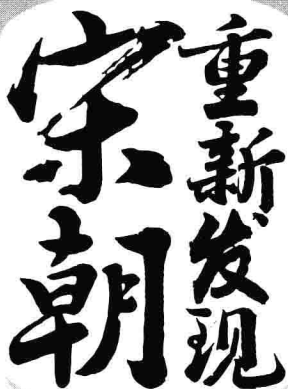 重新发现
宋朝